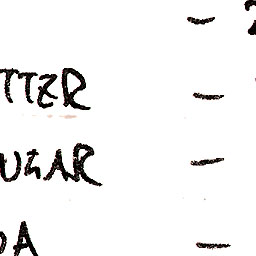 —
TTER —
UGAR —
DA —